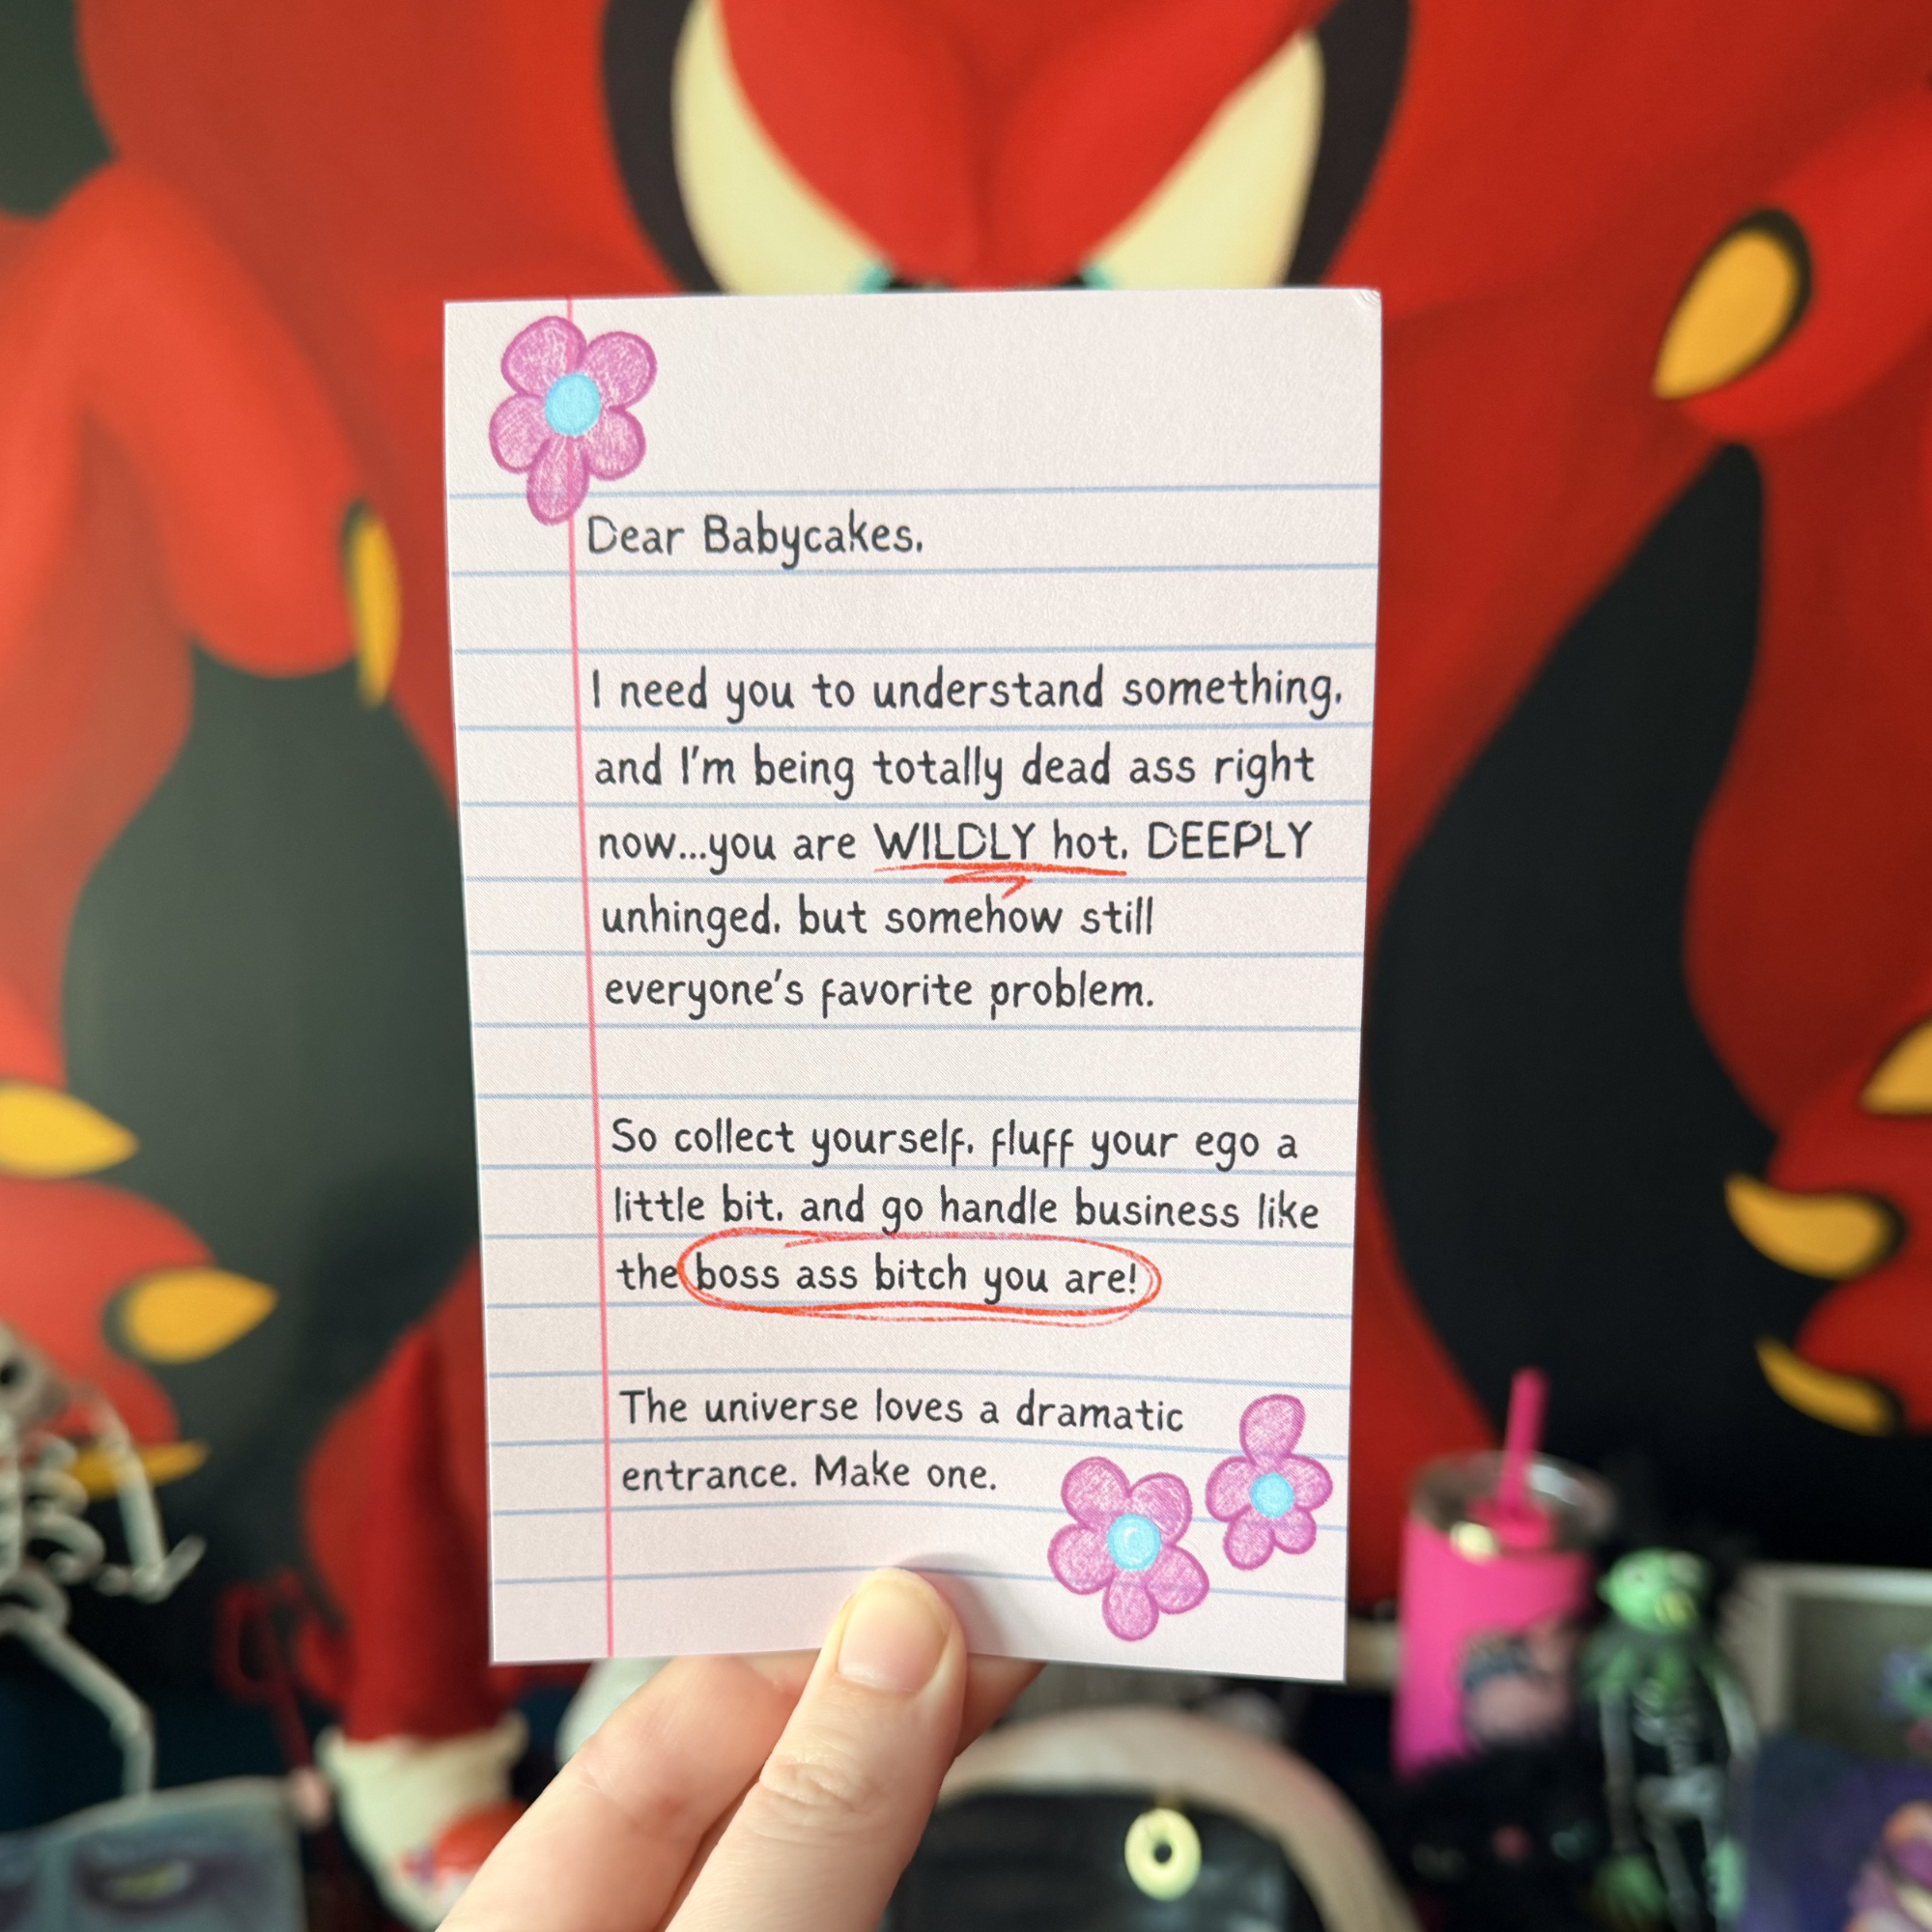 Dear Babycakes,
I need you to understand something,
and I'm being totally dead ass right
now...you are WILDLY hot, DEEPLY
unhinged, but somehow still
everyone's favorite problem.
So collect yourself, fluff your ego a
little bit, and go handle business like
the boss ass bitch you are!
The universe loves a dramatic
entrance. Make one.